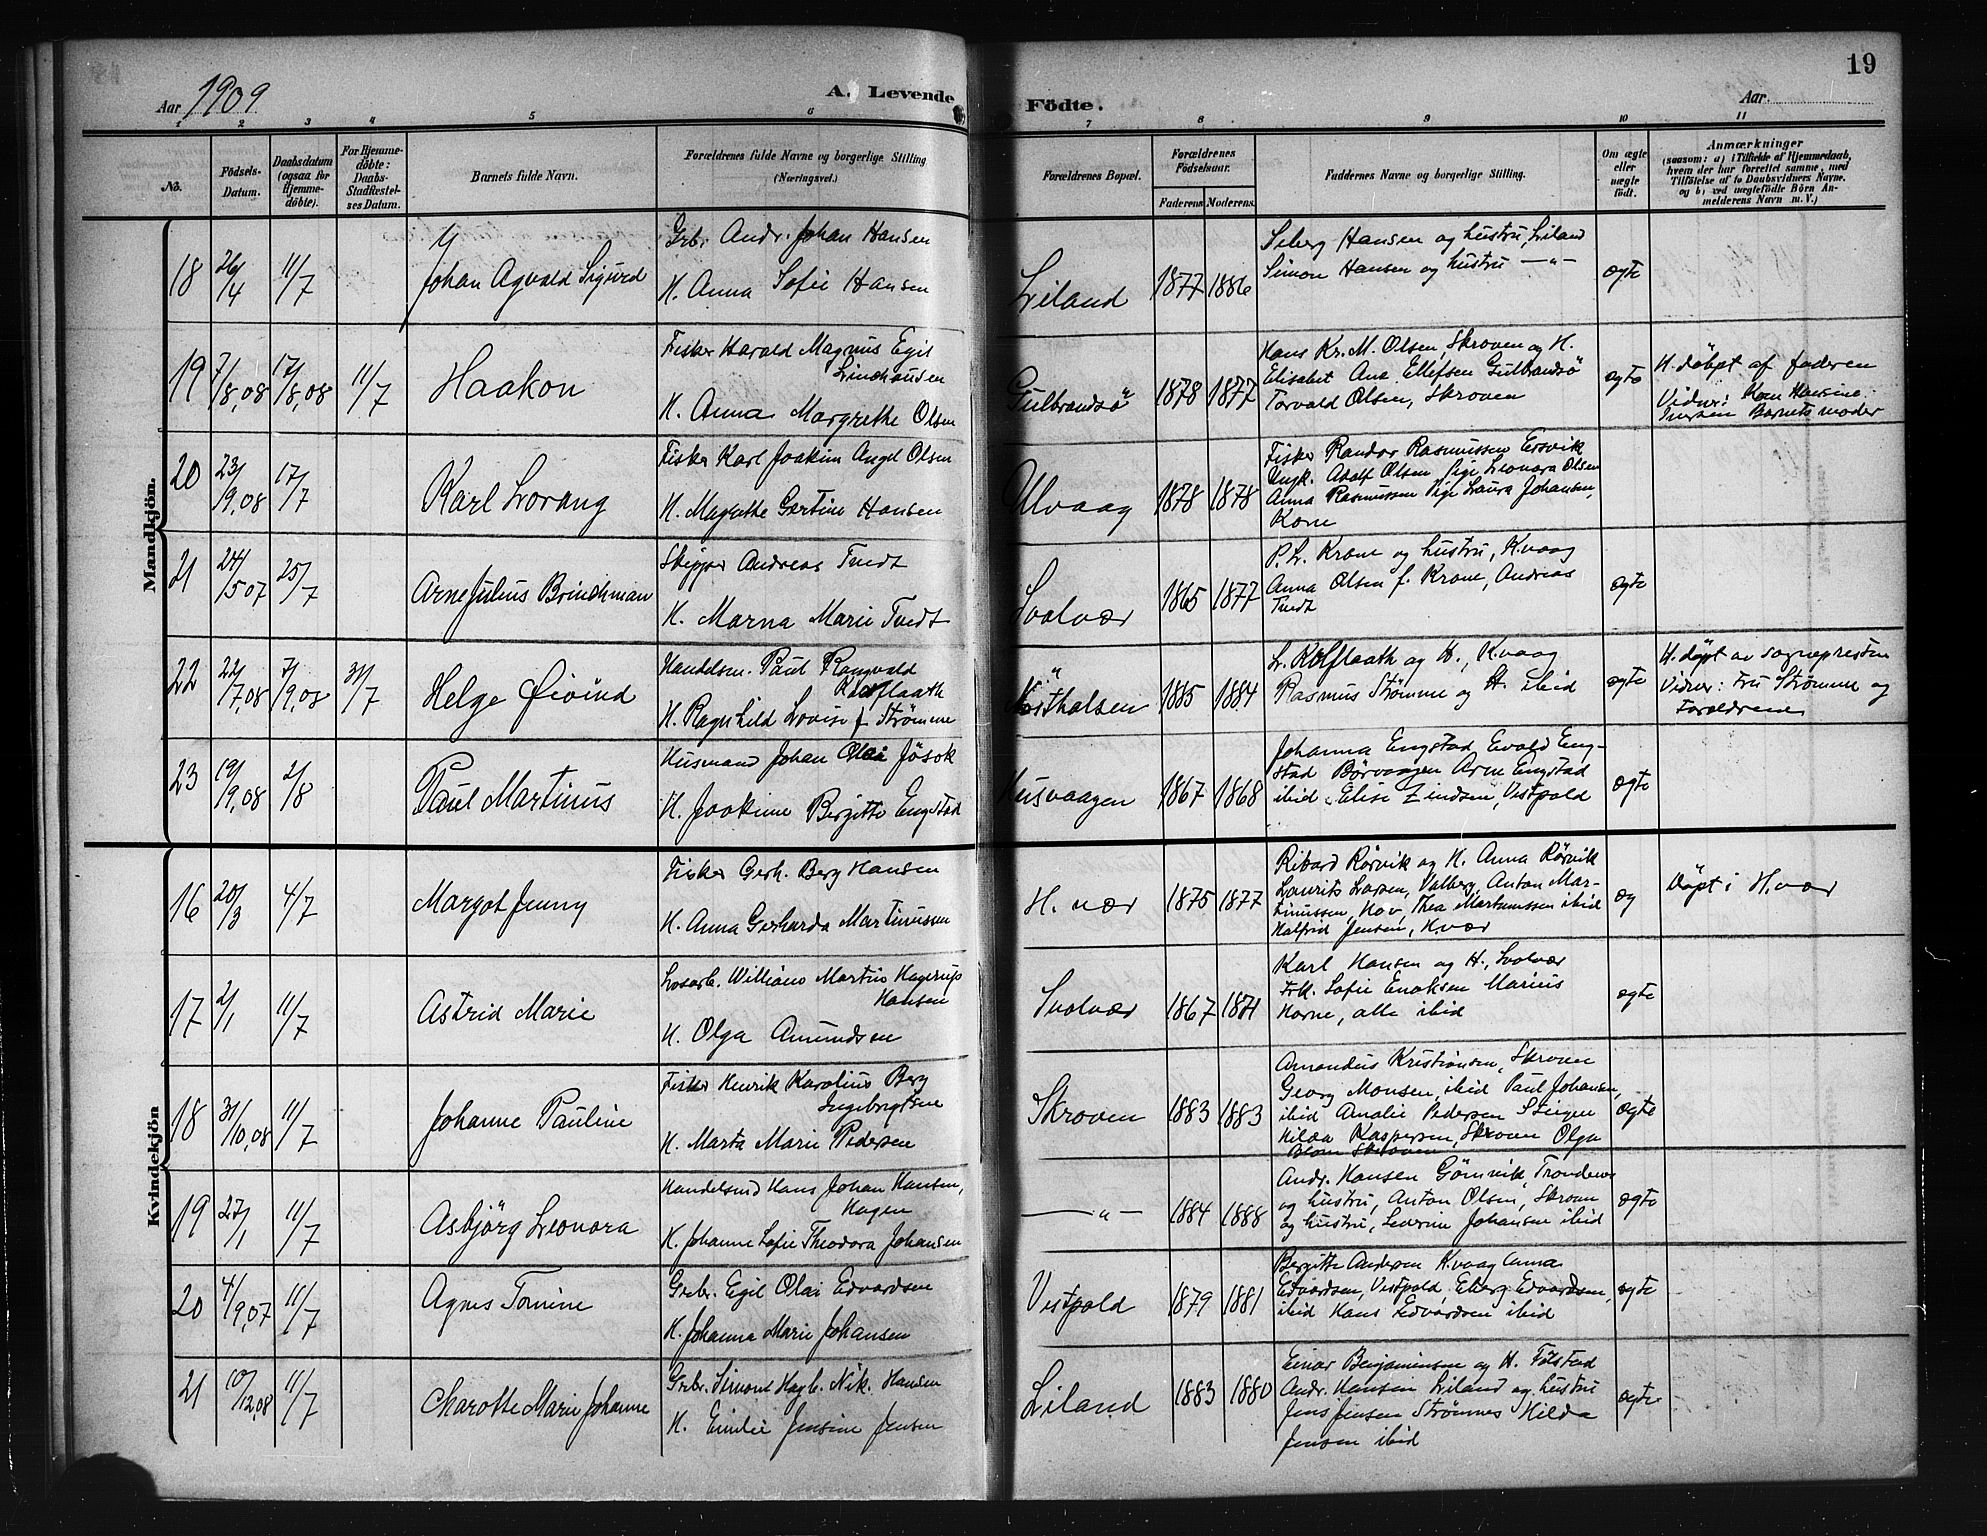 19
Aar 1909
A. Levende
Födte.
Aar.
1 2 3 4 5 6 7 8 9 10 11
No.
Födsels-
Datum.
Daabsdatum
(ogsaa for
Hjemme-
döbte).
For Hjemme-
döbte:
Daabs-
Stadfæstel-
ses Datum.
Barnets fulde Navn.
Forældrenes fulde Navne og borgerlige Stilling
(Næringsvei.)
Forældrenes Bopæl.
Forældrenes
Födselsaar.
Faderens Moderens.
Faddernes Navne og borgerlige Stilling.
Om ægte
eller
uægte
födt.
Anmærkninger
(saasom: a) i Tilfælde af Hjemmedaab,
hvem der har forrettet samme, med
Tilföielse af to Daabsvidners Navne,
og b) ved uægtefödte Börn An-
melderens Navn m. V.)
Mandkjön.
18 26/4 11/7
Johan Agvald Sigurd
Grbr. Andr. Johan Hansen
H. Anna Sofie Hansen
Liland
1877 1886
Seberg Hansen og hustru, Liland
Simon Hansen og hustru —"—
ægte
19 7/8,08 17/8,08 11/7
Haakon
Fisker Harald Magnus Egil
Lindhausen
H. Anna Margrethe Olsen
Gulbrandsö
1878 1877
Hans Kr. M. Olsen, Skroven og H.
Elisabet Ana Ellefsen Gulbrandsö
Torvald Olsen, Skroven
ægte
H. döbpt af faderen
Vidner: Kon Hansine
Iversen Barnets moder
20 23/9,08 17/7
Karl Lorang
Fisker Karl Joakim Angel Olsen
H. Magrethe Gertine Hansen
Ulvaag
1878 1878
Fisker Randor Rasmussen Ersvik
Ungk. Adolf Olsen Pige Leonora Olsen
Anna Rasmussen Pige Laura Johansen,
Kone
21 24/5 07 25/7
Arne Julius Brinchman
Skipper Andreas Tvedt
H. Marna Marie Tvedt
Svolvær
1865 1877
P. L. Krane og hustru, K.vaag
Anna Olsen f. Krane, Andreas
Tvedt
ægte
22 22/7,08 7/9,08 31/7
Helge Öivind
Handelsm. Paul Rangvald
Rolflaath
H. Ragnhild Lovise f. Strömme
Östholsen
1885 1884
L. Rolflaath og H., K.vaag
Rasmus Strömme og H. ibid
ægte
H. döpt av sogneprestn
Vidner: Fru Strömme og
Forældrene
23 19/9,08 2/8
Paul Martinus
Husmand Johan Olai Jösok
H. Joakime Birgitte Engstad
Husvaagen
1867 1868
Johanna Engstad, Evald Eng-
stad Börvaagen Arne Engstad
ibid, Elise Zindsen, Vestpold
ægte
Kvindekjön
16 20/3 4/7
Margot Jenny
Fisker Gerh. Berg Hansen
H. Anna Gerharda Martinussen
H. vær
1875 1877
Rikard Rörvik og H. Anna Rörvik
Laurits Larsen, Valberg, Anton Mar-
tinussen, Hov, Thea Martinussen ibid
Halfrid Jensen, H.vær
og
Döpt i H.vær
17 2/1 11/7
Astrid Marie
Losarb. Williams Martin Hagerup
Hansen
H. Olga Amundsen
Svolvær
1867 1871
Karl Hansen og H., Svolvær
Frk. Sofie Enoksen Marius
Horne, alle ibid
ægte
18 31/10,08 11/7
Johanne Pauline
Fisker Henrik Karolius Berg
Ingebrigtsen
H. Marta Marie Pedersen
Skroven
1883 1883
Amandus Kristiansen, Skroven
Georg Monsen, ibid Paul Johansen,
ibid Amalie Pedersen Steigen
Hilda Kaspersen, Skroven Olga
Blom Skroven
ægte
19 27/1 11/7
Asbjörg Leonora
Handelsmd Hans Johan Hansen,
Hagen
H. Johanne Sofie Theodora Johansen
—"—
1884 1888
Andr. Hansen Gömvik, Trondenes
og hustru, Anton Olsen, Skroven
og hustru, Severine Johansen ibid
ægte
20 4/9,07 11/7
Agnes Tomine
Grbr. Egil Olai Edvardsen
H. Johanna Marie Johansen
Vestpold
1879 1881
Bergitte Andersen K.vaag Anna
Edvardsen, Vestpold, Elberg Edvardsen,
ibid Hans Edvardsen ibid
ægte
21 10/12,08 11/7
Charotte Marie Johanne
Grbr. Simons Hagb. Nik. Hansen
H. Emilie Jensine Jensen
Liland
1883 1880
Einar Benjaminsen og H. Tölstad
Andr. Hansen Liland og hustru
Jens Jensen Strömnes Hilda
Jensen ibid
ægte